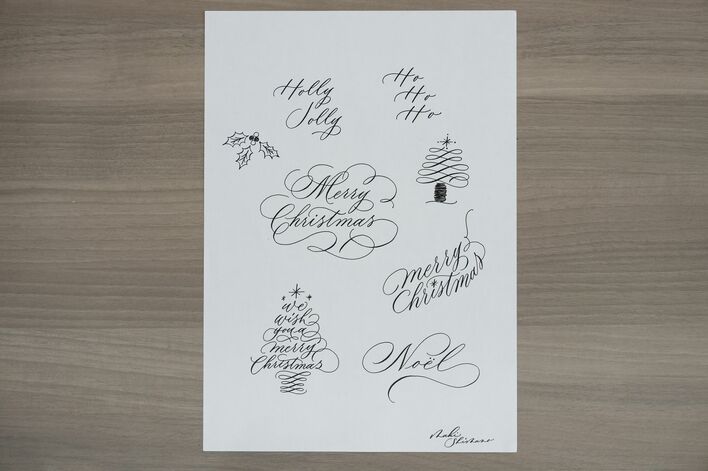 Holly
Jolly
Ho
Ho
Ho
Merry
Christmas
merry
Christmas
we
wish
you a
merry
Christmas
Noël
Maki
Shimano